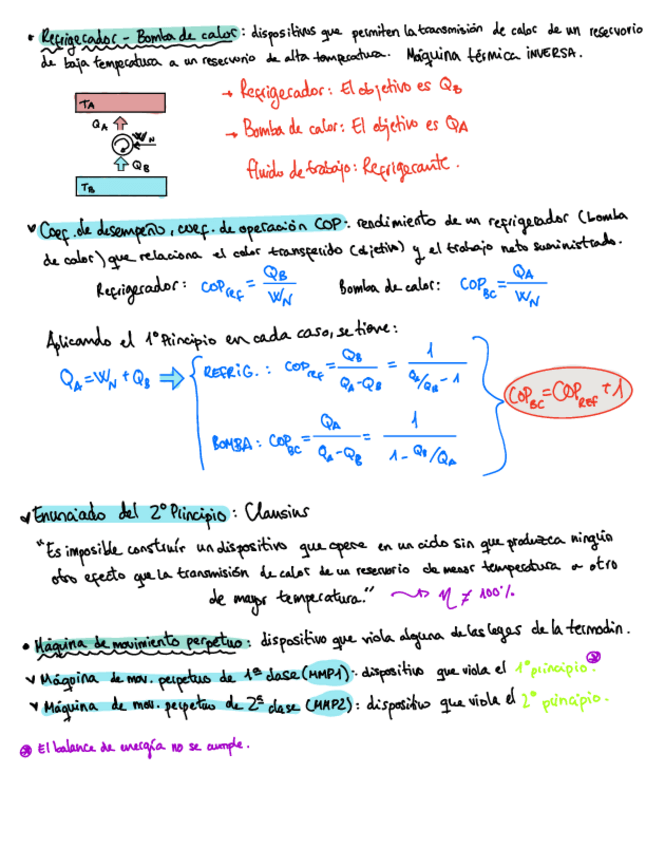 • Refrigerador - Bomba de calor: dispositivos que permiten la transmisión de calor de un reservorio
de baja temperatura a un reservorio de alta temperatura. Máquina térmica INVERSA.
TA
QA
WN
QB
TB
→ Refrigerador: El objetivo es QB
→ Bomba de calor: El objetivo es QA
Fluido de trabajo: Refrigerante.
✓ Coef. de desempeño, coef. de operación COP: rendimiento de un refrigerador (bomba
de calor) que relaciona el calor transferido (objetivo) y el trabajo neto suministrado.
Refrigerador: COPref = QB / WN Bomba de calor: COPBC = QA / WN
Aplicando el 1º Principio en cada caso, se tiene:
QA = WN + QB ⇒ { REFRIG.: COPref = QB / (QA - QB) = 1 / (QA/QB - 1)
BOMBA: COPBC = QA / (QA - QB) = 1 / (1 - QB/QA)
COPBC = COPREF + 1
✓ Enunciado del 2º Principio: Clausius
"Es imposible construir un dispositivo que opere en un ciclo sin que produzca ningún
otro efecto que la transmisión de calor de un reservorio de menor temperatura a otro
de mayor temperatura." → η ≠ 100%
• Máquina de movimiento perpetuo: dispositivo que viola alguna de las leyes de la termodin.
✓ Máquina de mov. perpetuo de 1ª clase (MMP1): dispositivo que viola el 1º principio. ⊛
✓ Máquina de mov. perpetuo de 2ª clase (MMP2): dispositivo que viola el 2º principio.
⊛ El balance de energía no se cumple.